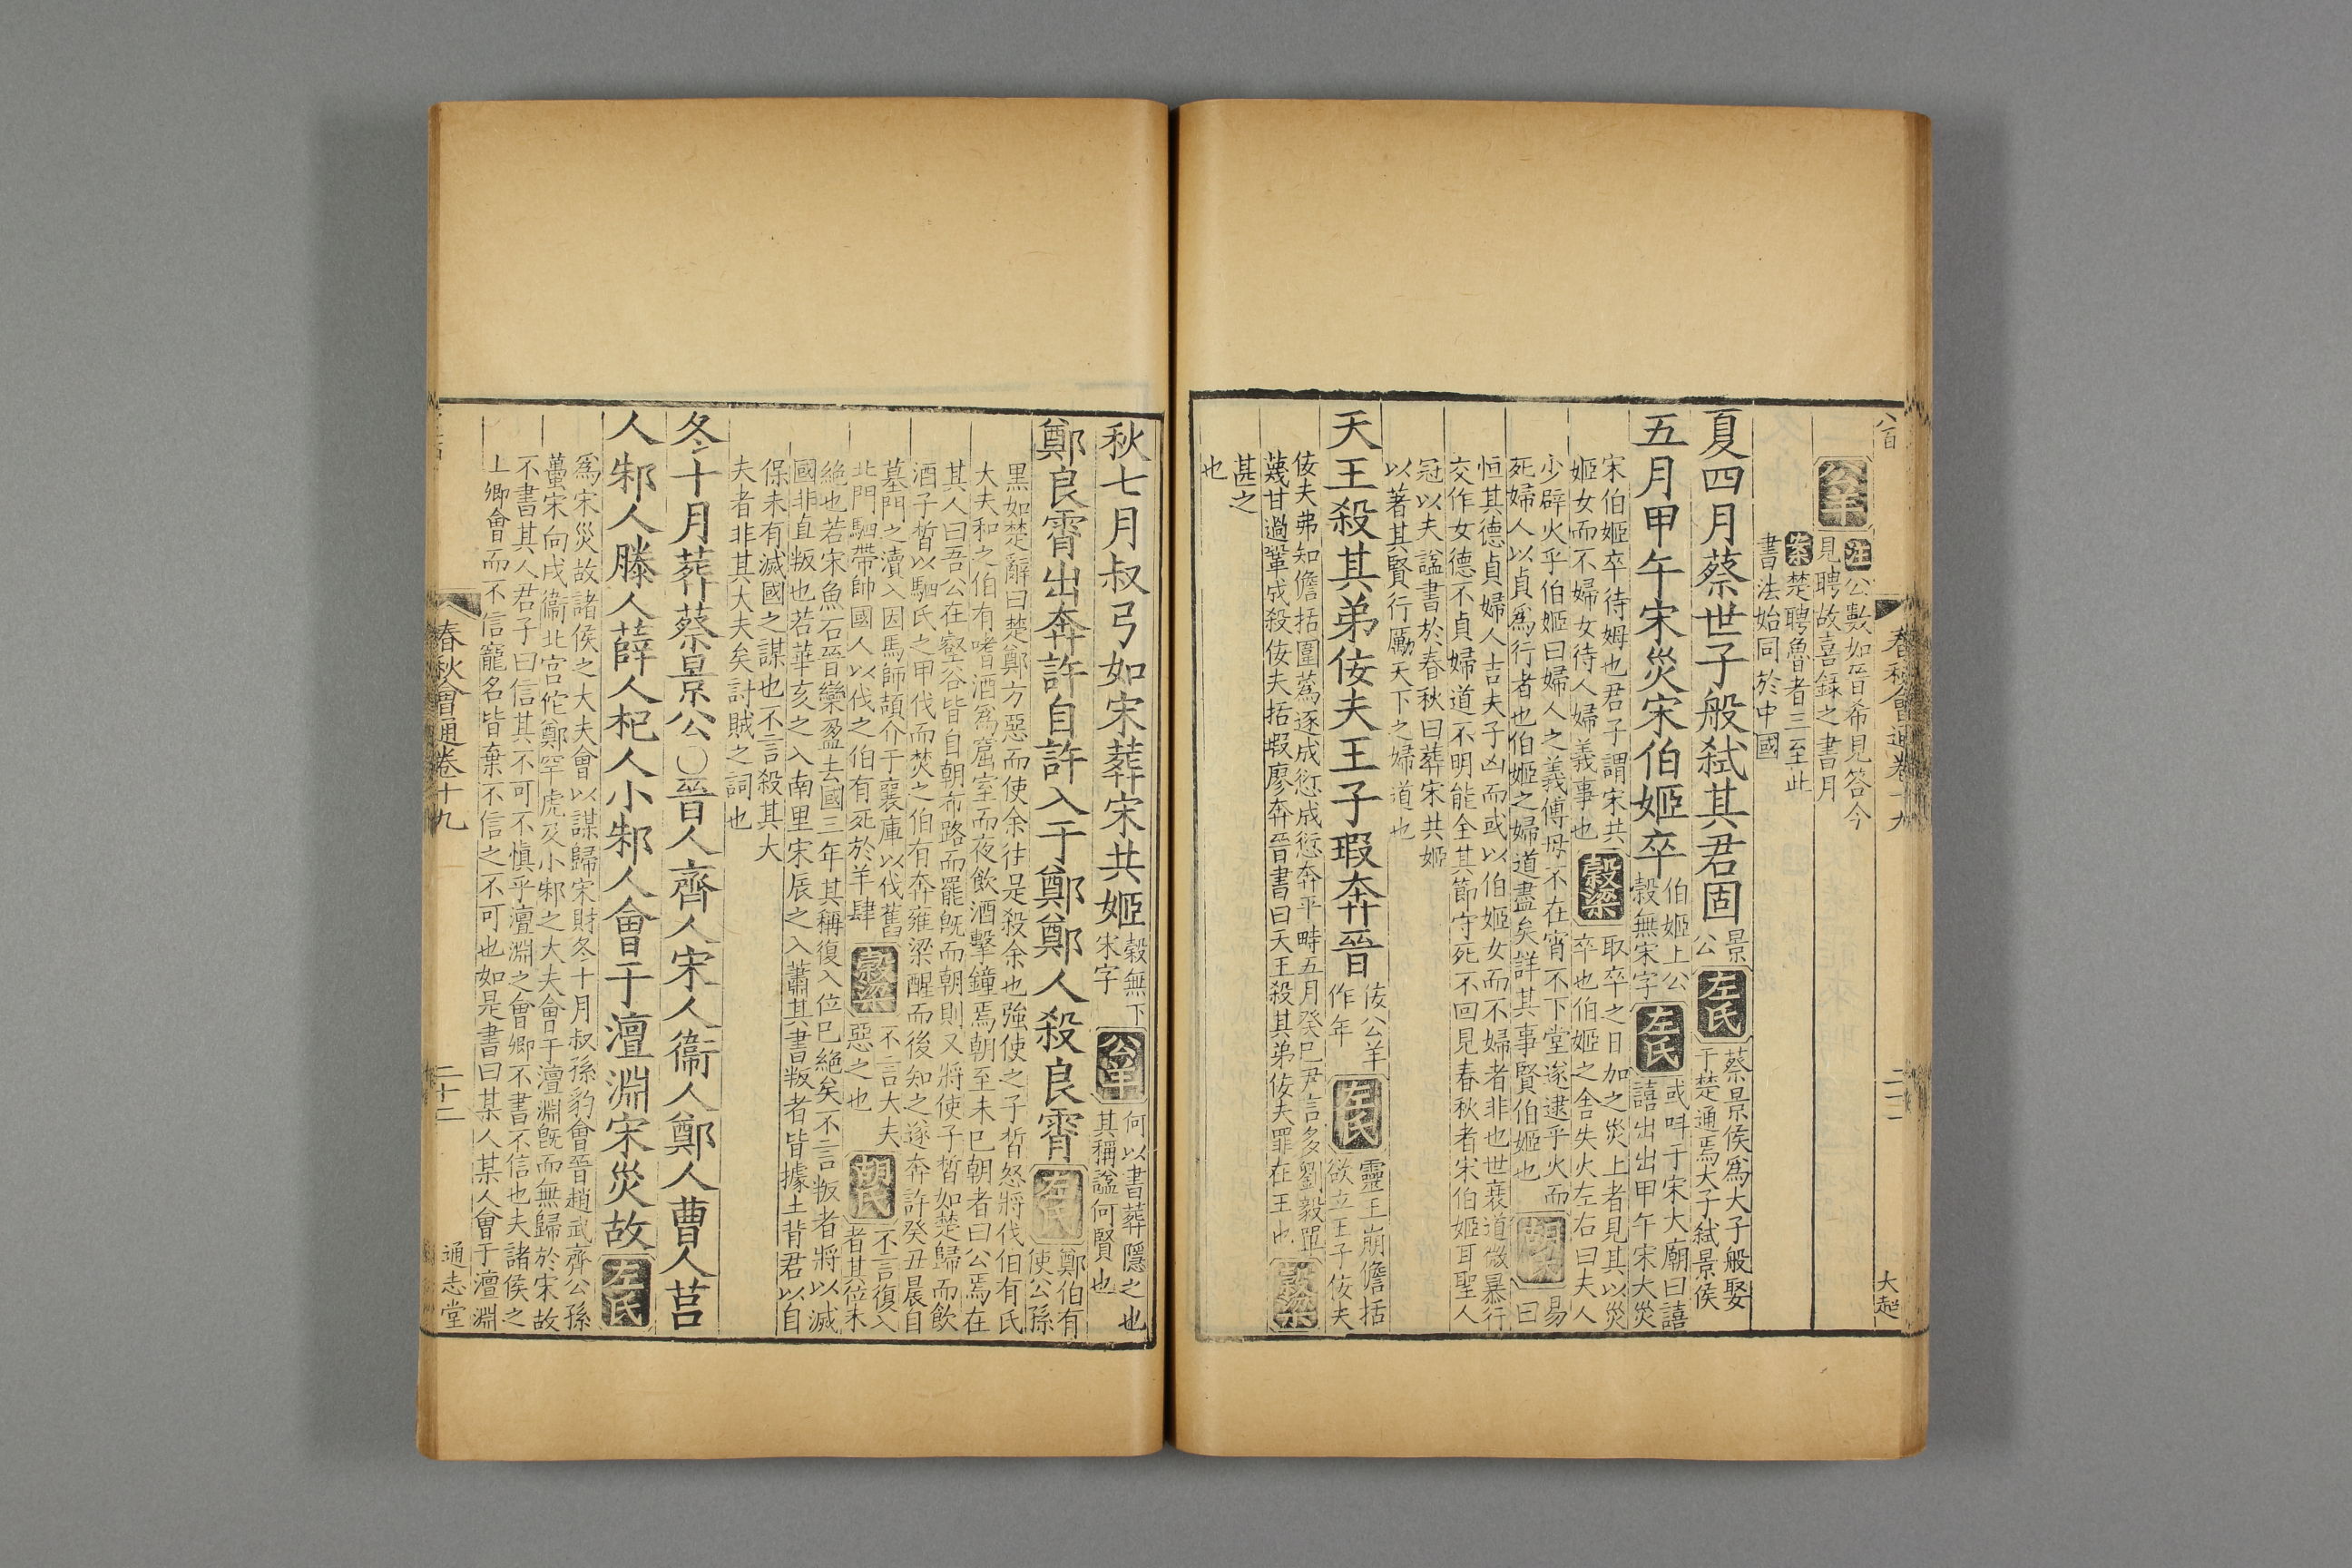 八百
春秋會通卷十九
二十一
大起
公羊
注公數如晉希見答今
見聘故喜録之書月
案楚聘魯者三至此
書法始同於中國
夏四月蔡世子般弑其君固
景
公
左氏
蔡景侯爲大子般娶
于楚通焉大子弑景侯
五月甲午宋災宋伯姬卒
伯姬上公
穀無宋字
左氏
或呌于宋大廟曰譆
譆出出甲午宋大災
宋伯姬卒待姆也君子謂宋共
姬女而不婦女待人婦義事也
穀梁
取卒之日加之災上者見其以災
卒也伯姬之舍失火左右曰夫人
少辟火乎伯姬曰婦人之義傅母不在宵不下堂遂逮乎火而
死婦人以貞爲行者也伯姬之婦道盡矣詳其事賢伯姬也
胡氏
易
曰
恒其德貞婦人吉夫子凶而或以伯姬女而不婦者非也世衰道微暴行
交作女德不貞婦道不明能全其節守死不回見春秋者宋伯姬耳聖人
冠以夫謚書於春秋曰葬宋共姬
以著其賢行勵天下之婦道也
天王殺其弟佞夫王子瑕奔晉
佞公羊
作年
左氏
靈王崩儋括
欲立王子佞夫
佞夫弗知儋括圍蒍逐成愆成愆奔平畤五月癸巳尹言多劉毅單
蔑甘過鞏成殺佞夫括瑕廖奔晉書曰天王殺其弟佞夫罪在王也
穀梁
甚之
也
秋七月叔弓如宋葬宋共姬
穀無下
宋字
公羊
何以書葬隱之也
其稱謚何賢也
鄭良霄出奔許自許入于鄭鄭人殺良霄
左氏
鄭伯有
使公孫
黑如楚辭曰楚鄭方惡而使余往是殺余也強使之子晳怒將伐伯有氏
大夫和之伯有嗜酒爲窟室而夜飲酒擊鐘焉朝至未巳朝者曰公焉在
其人曰吾公在壑谷皆自朝布路而罷旣而朝則又將使子晳如楚歸而飲
酒子晳以駟氏之甲伐而焚之伯有奔雍梁醒而後知之遂奔許癸丑晨自
墓門之瀆入因馬師頡介于襄庫以伐舊
北門駟帶帥國人以伐之伯有死於羊肆
穀梁
不言大夫
惡之也
胡氏
不言復入
者其位未
絶也若宋魚石晉欒盈去國三年其稱復入位已絶矣不言叛者將以滅
國非直叛也若華亥之入南里宋辰之入蕭其書叛者皆據土背君以自
保未有滅國之謀也不言殺其大
夫者非其大夫矣討賊之詞也
冬十月葬蔡景公〇晉人齊人宋人衞人鄭人曹人莒
人邾人滕人薛人杞人小邾人會于澶淵宋災故
左氏
爲宋災故諸侯之大夫會以謀歸宋財冬十月叔孫豹會晉趙武齊公孫
蠆宋向戌衞北宮佗鄭罕虎及小邾之大夫會于澶淵旣而無歸於宋故
不書其人君子曰信其不可不愼乎澶淵之會卿不書不信也夫諸侯之
上卿會而不信寵名皆棄不信之不可也如是書曰某人某人會于澶淵
春秋會通卷十九
二十二
通志堂